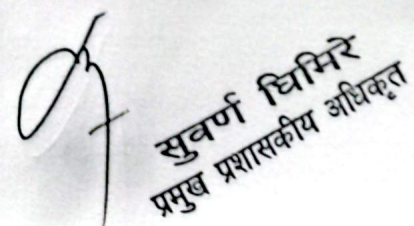 सुवर्ण घिमिरे
प्रमुख प्रशासकीय अधिकृत